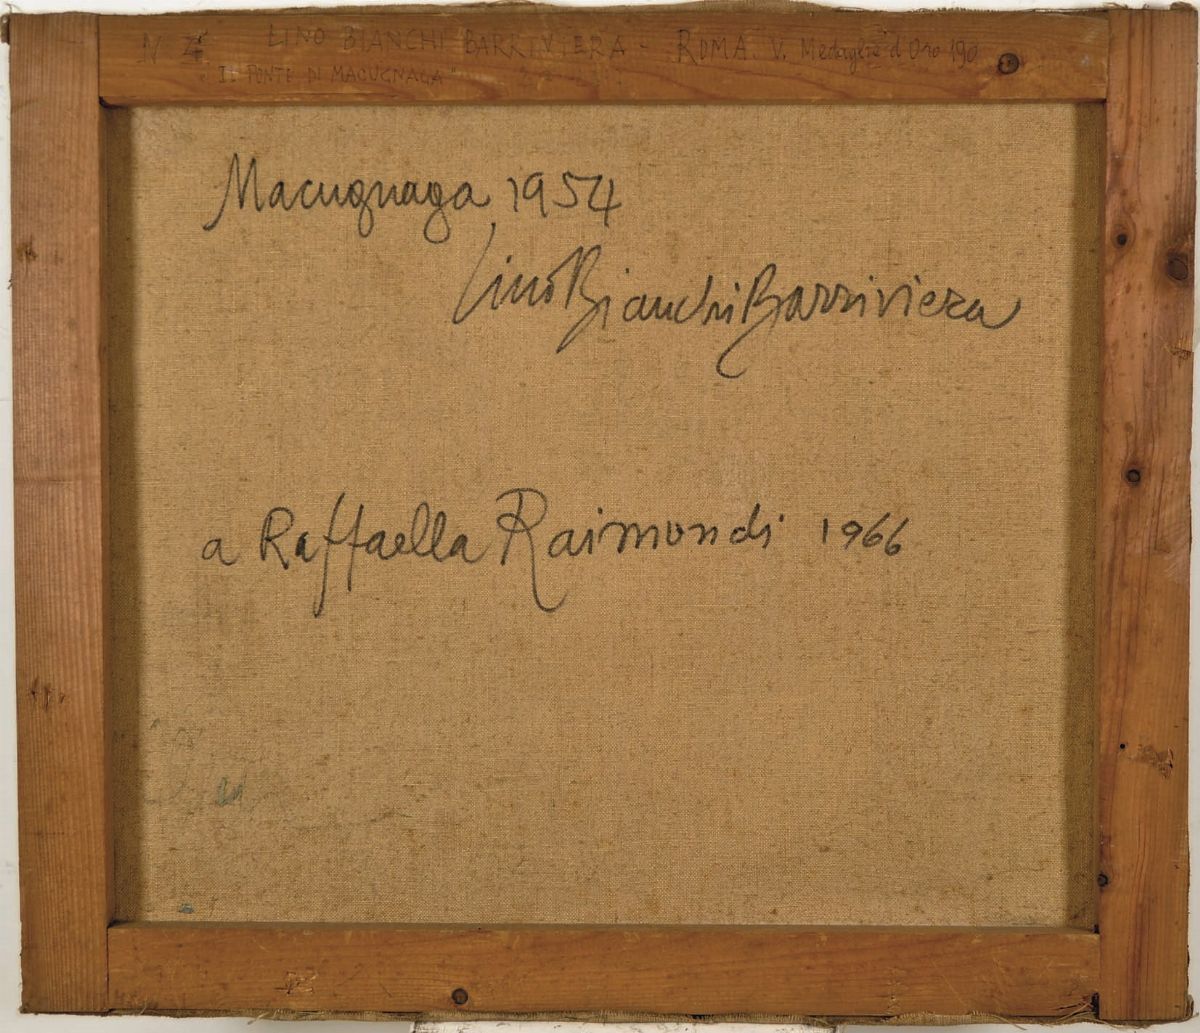 N 4 LINO BIANCHI BARRIVIERA - ROMA. V. Medaglie d'Oro 190
"IL PONTE DI MACUGNAGA"
Macugnaga 1954
Lino Bianchi Barriviera
a Raffaella Raimondi 1966